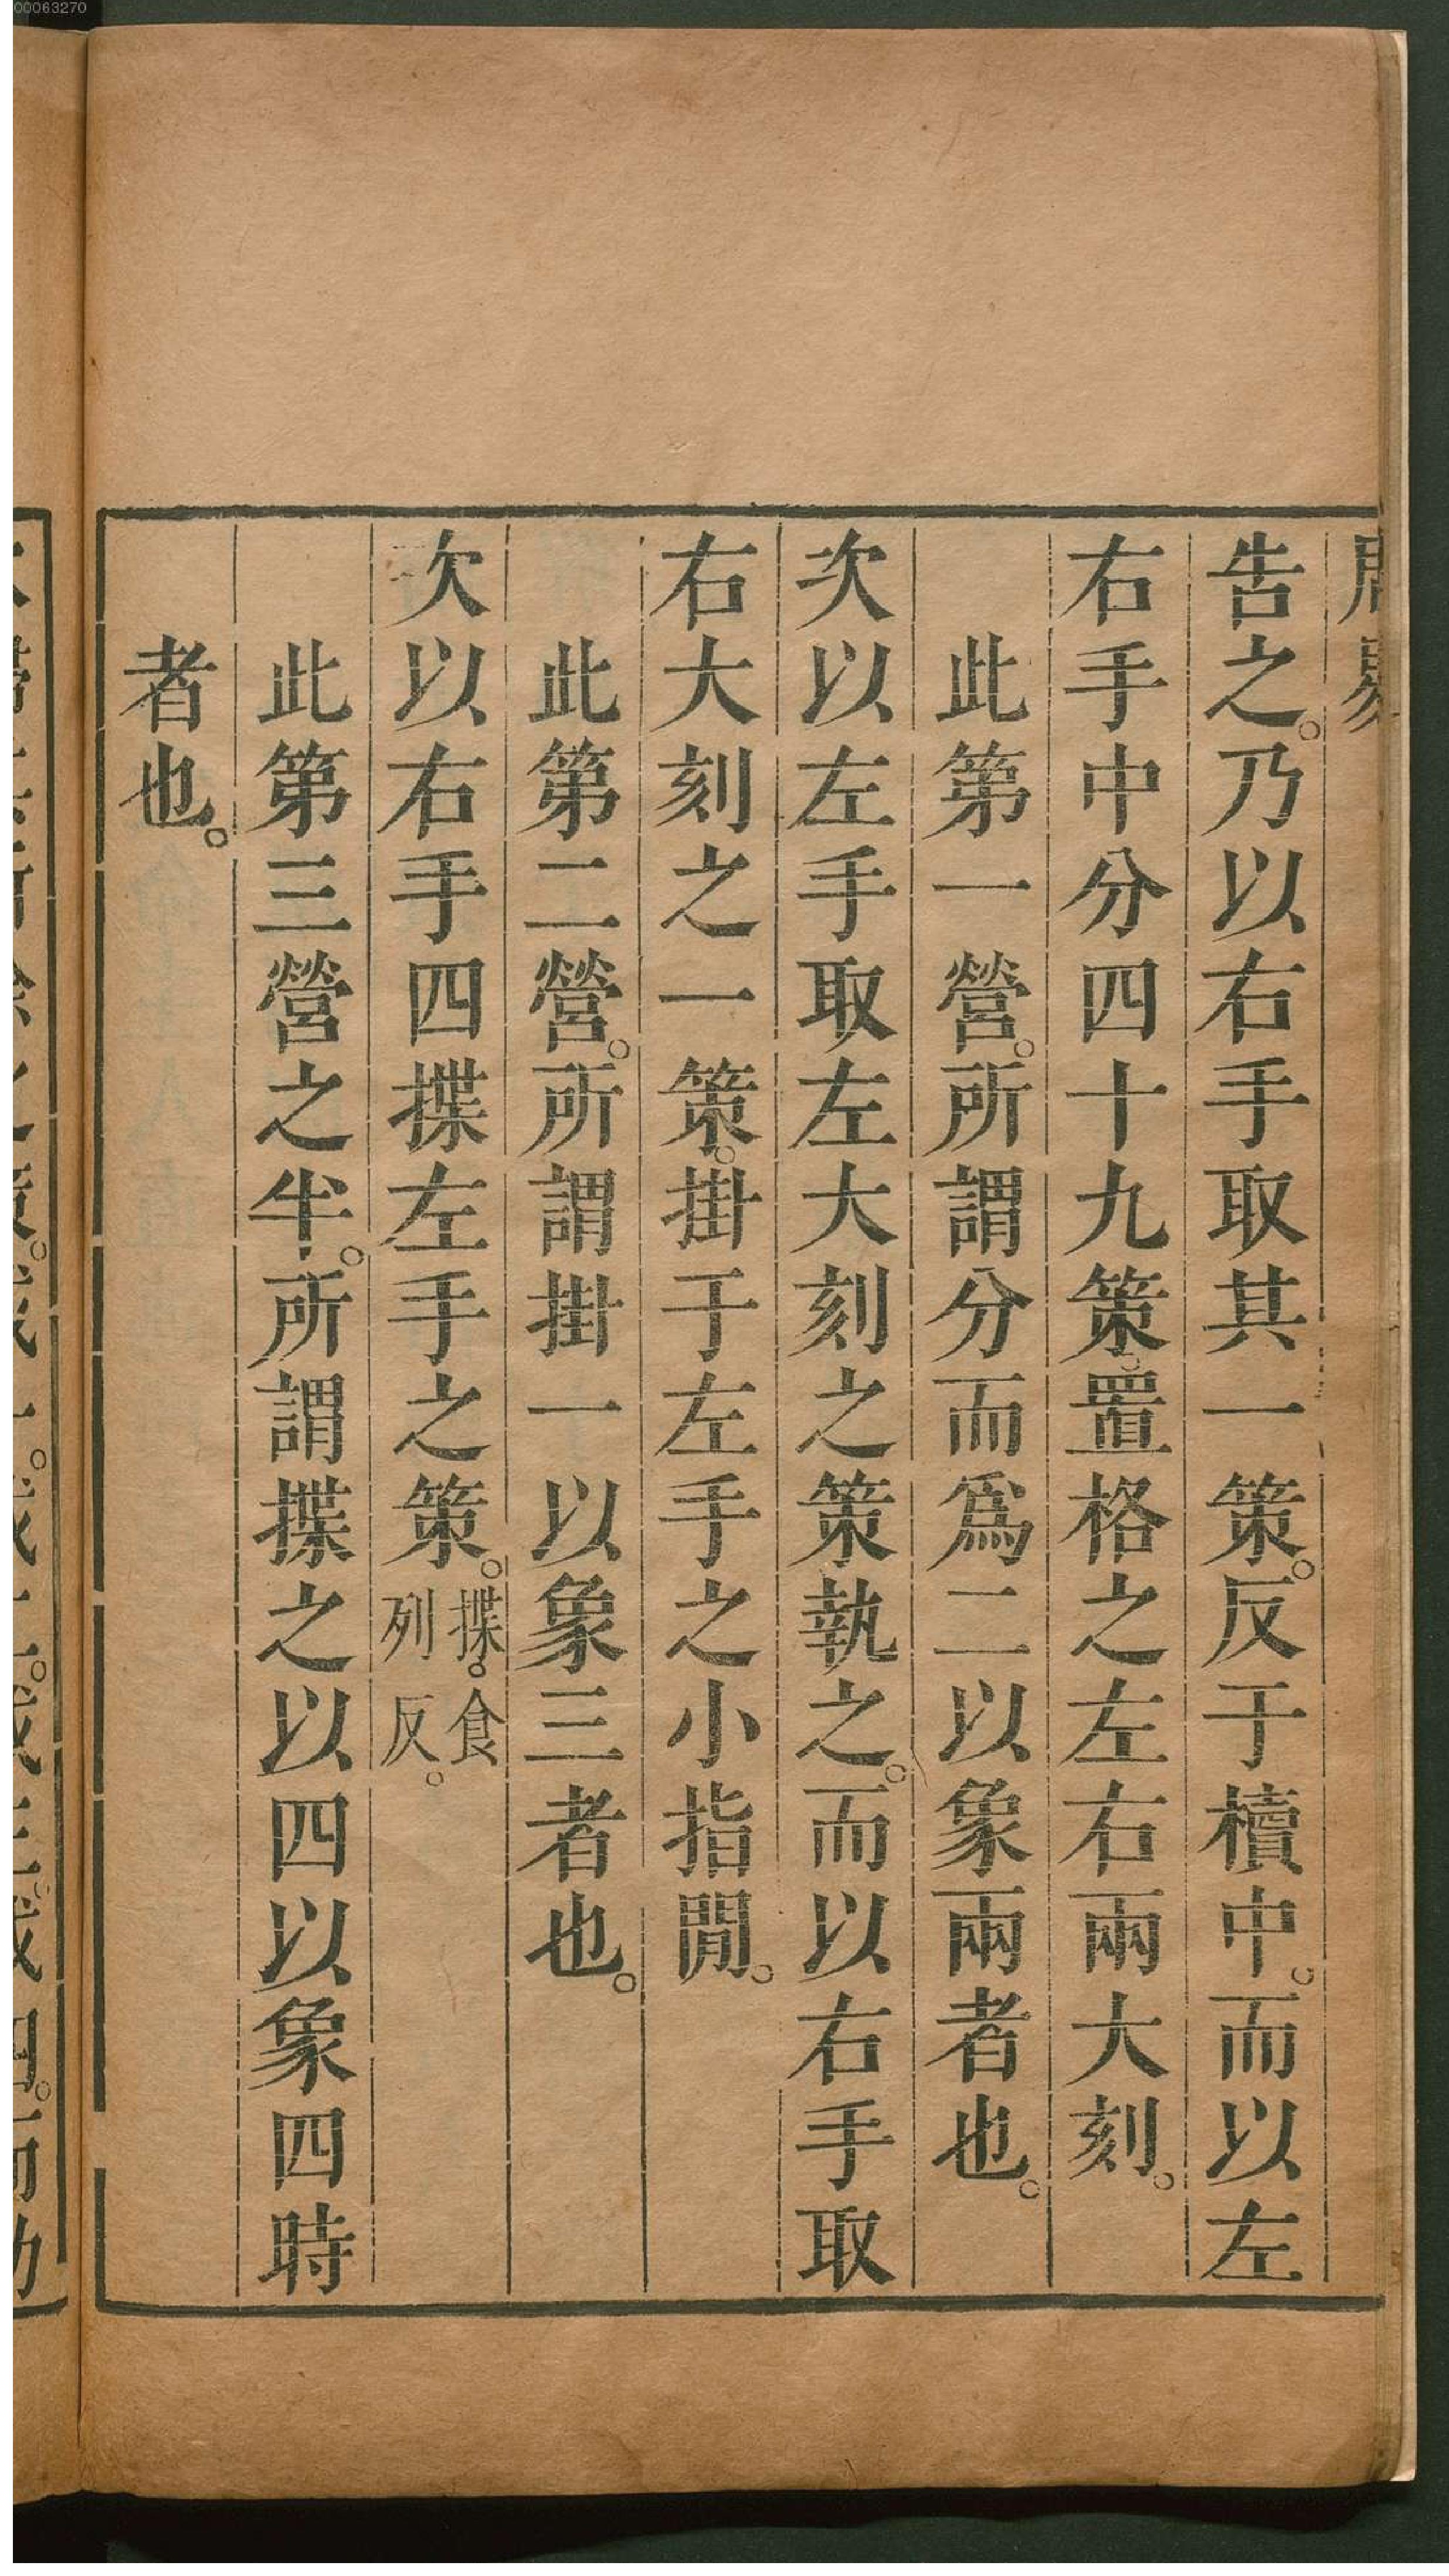 00063270
周易
告之。乃以右手取其一策。反于櫝中。而以左
右手中分四十九策。置格之左右兩大刻。
此第一營。所謂分而爲二以象兩者也。
次以左手取左大刻之策執之。而以右手取
右大刻之一策。掛于左手之小指閒。
此第二營。所謂掛一以象三者也。
次以右手四揲左手之策。揲。食列反。
此第三營之半。所謂揲之以四以象四時
者也。